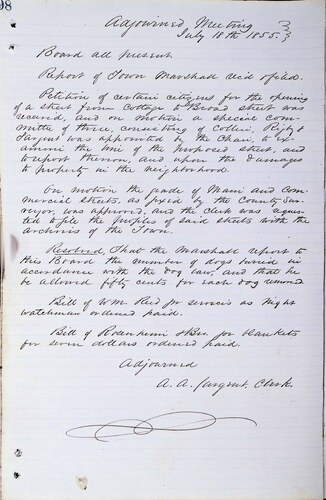 98
Adjourned Meeting
July 18th 1855.
Board all present
Report of Town Marshall rec'd & filed.
Petition of certain citizens for the opening
of a street from Cottage to Broad street was
received, and on motion a special Com-
mittee of three, consisting of Colley, Rig &
Sargent was appointed by the Chair, to ex-
amine the line of the proposed street, and
to report thereon, and upon the damages
to property in the neighborhood.
On motion the grade of Main and Com-
mercial streets, as fixed by the County Sur-
veyor, was approved, and the Clerk was
to file the profiles of said streets with the
archives of the Town.
Resolved, That the Marshall report to
this Board the number of dogs buried in
accordance with the dog law, and that he
be allowed fifty cents for each dog
Bill of Wm Reid for services as Night
watchman ordered paid.
Bill of Rosenheim & Bro for blankets
for seven dollars ordered paid.
Adjourned
A. A. Sargent, Clerk.